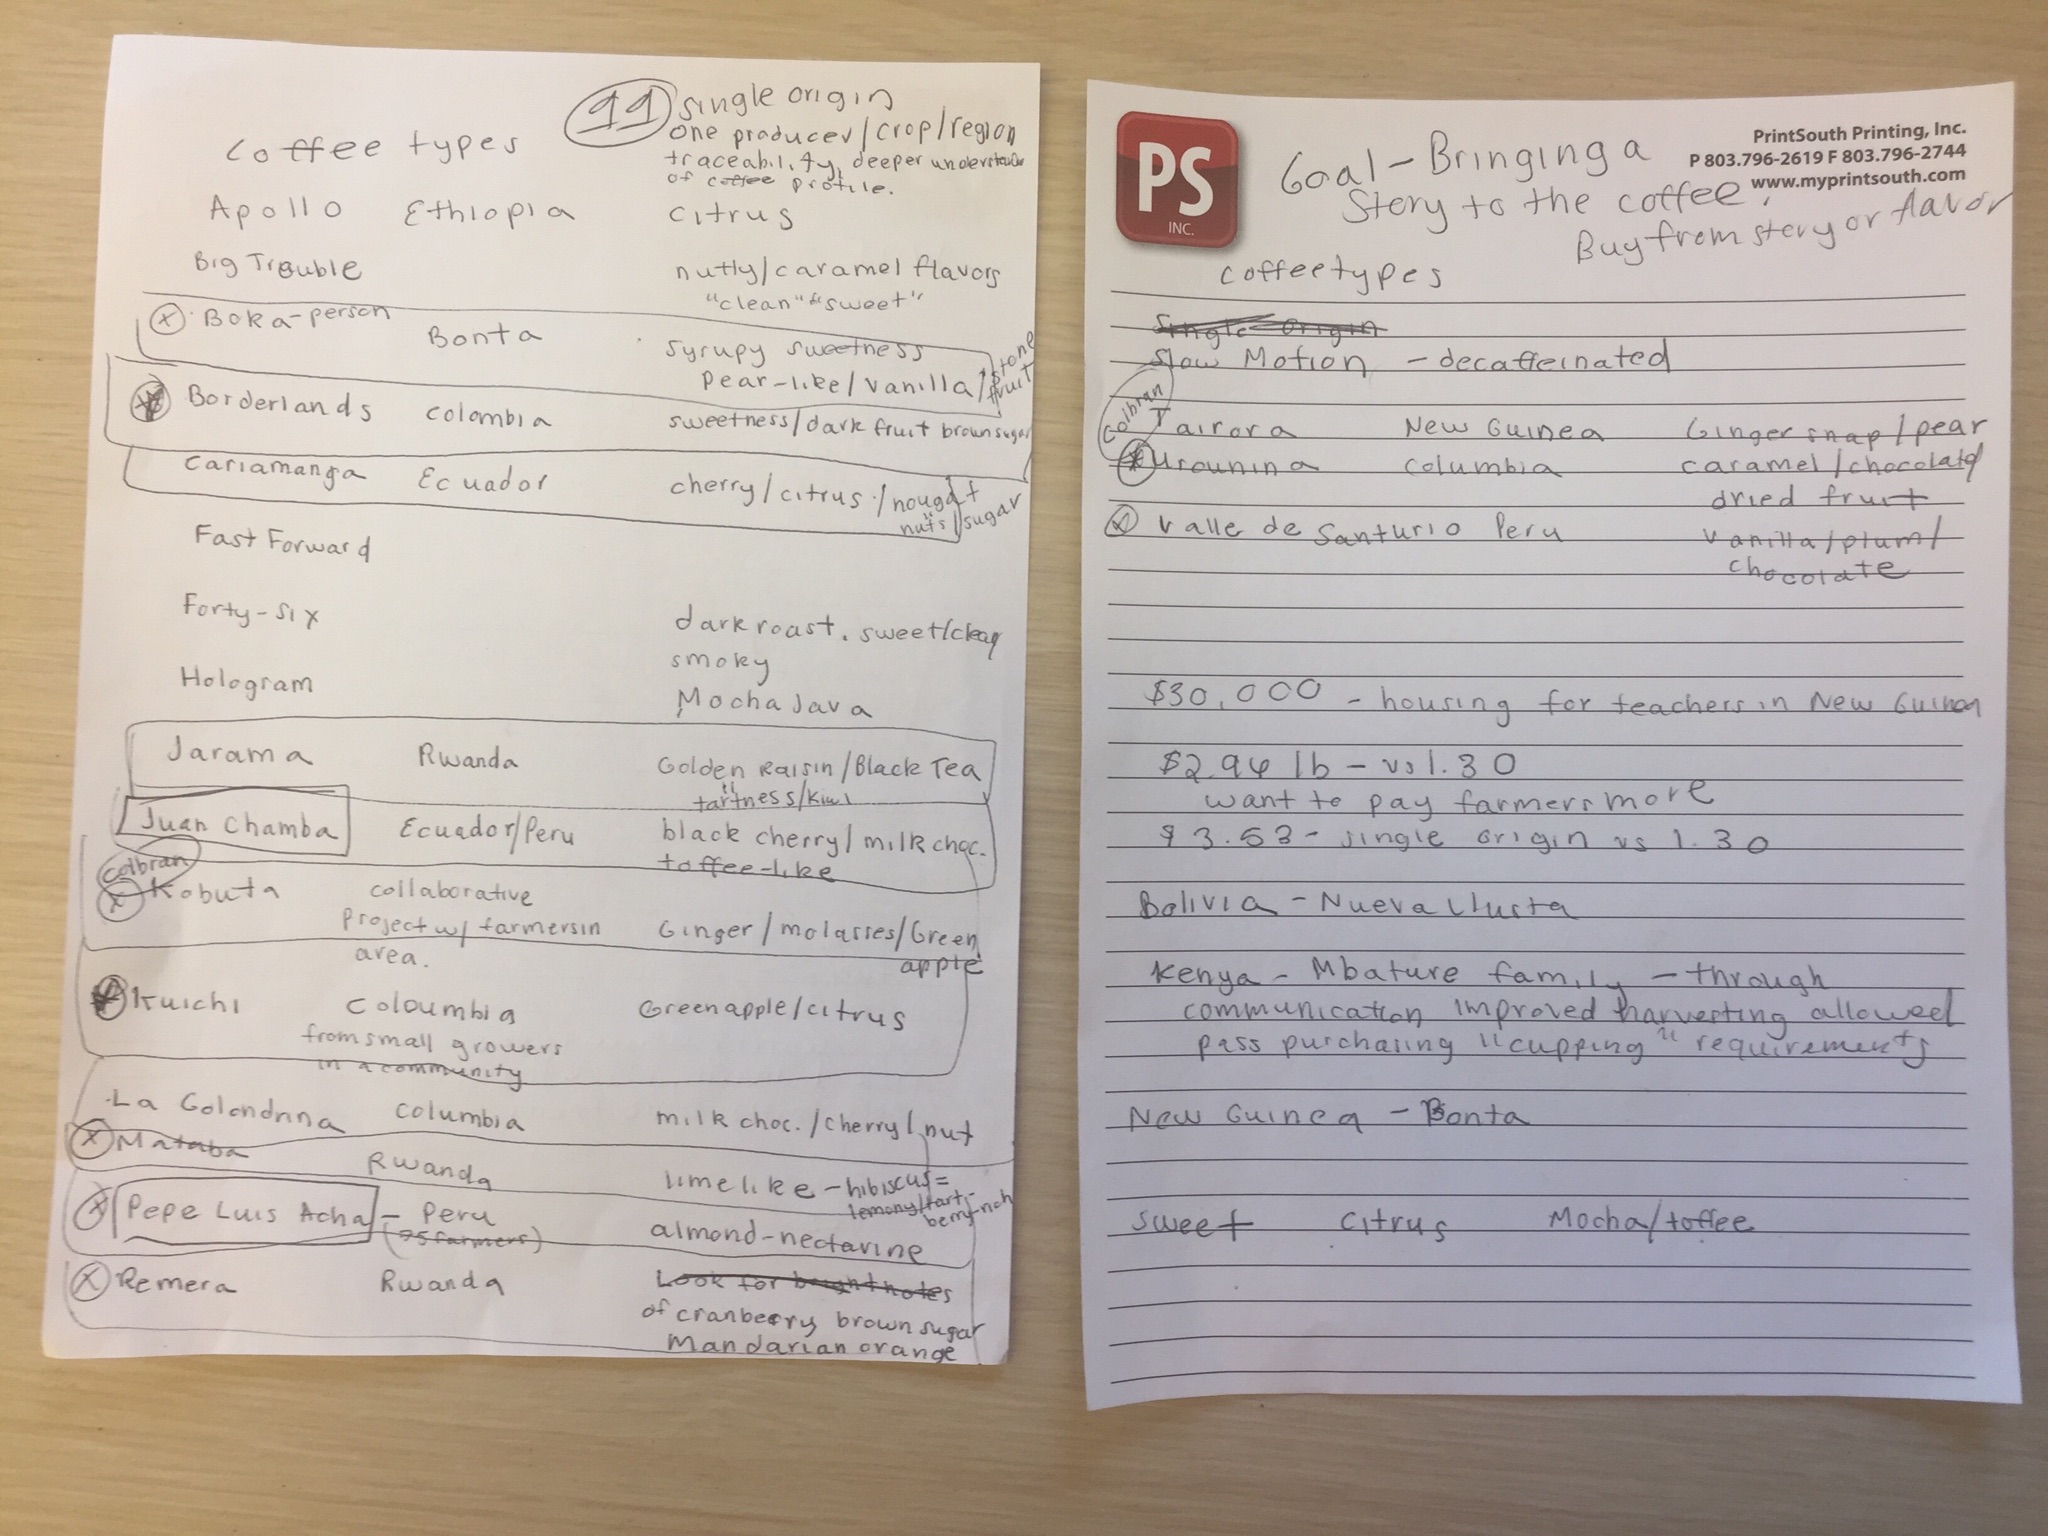 Coffee types
99 single origin
one producer/crop/region
traceability, deeper
of coffee profile.
Apollo Ethiopia citrus
Big Trouble nutty/caramel flavors
"clean" & "sweet"
Boka-person Bonta syrupy sweetness
Pear-like/vanilla/stone fruit
Borderlands colombia sweetness/dark fruit brown sugar
Cariamanga Ecuador cherry/citrus/nougat
nuts/sugar
Fast Forward
Forty-six dark roast. sweet/clean
smoky
Hologram Mocha Java
Jarama Rwanda Golden Raisin/Black Tea
tartness/kiwi
Juan Chamba Ecuador/Peru black cherry/milk choc.
toffee-like
colbran
Kobuta collaborative
project w/ farmers in Ginger/molasses/Green
area. apple
Kuichi Coloumbia Green apple/citrus
from small growers
in a community
La Golondrina columbia milk choc./cherry/nut
Mataba
Rwanda lime like - hibiscus =
lemony/tart-
berry-rich
Pepe Luis Acha - Peru
(75 farmers) almond-nectarine
Remera Rwanda Look for bright notes
of cranberry brown sugar
Mandarian orange
PS
INC.
PrintSouth Printing, Inc.
P 803.796-2619 F 803.796-2744
www.myprintsouth.com
Goal - Bringing a
Story to the coffee.
Buy from story or flavor
coffee types
Single origin
Slow Motion - decaffeinated
Colbran
Tairora New Guinea Ginger snap/pear
Urounina Columbia caramel/chocolate/
dried fruit
Valle de Santurio Peru vanilla/plum/
chocolate
$30,000 - housing for teachers in New Guinea
$2.94 lb - vs 1.30
want to pay farmers more
$3.53 - single origin vs 1.30
Bolivia - Nueva Llusta
Kenya - Mbature family - through
communication improved harvesting allowed
pass purchasing "cupping" requirements
New Guinea - Bonta
sweet citrus Mocha/toffee